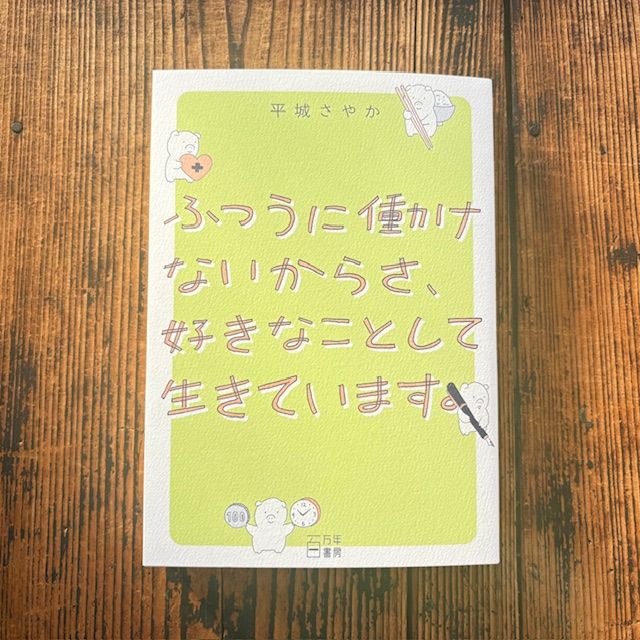 平城さやか
ふつうに働かけ
ないからさ、
好きなことして
生きています。
100
百万年
書房